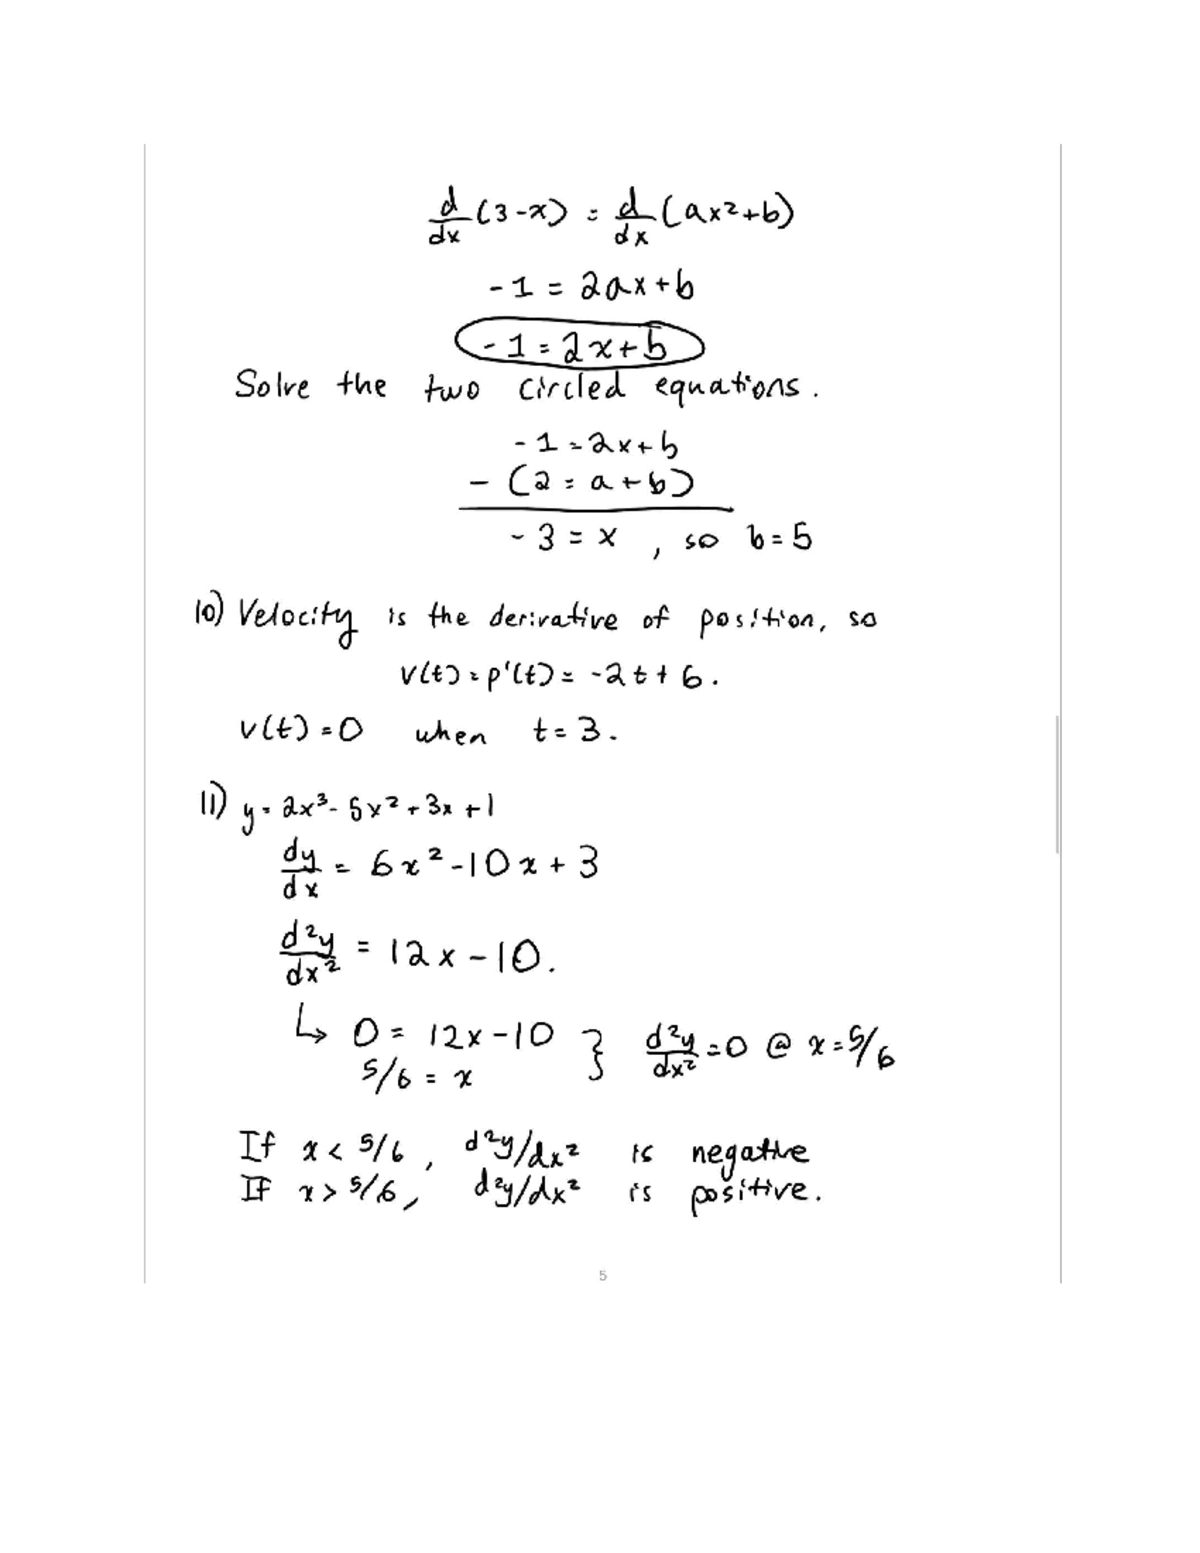 d/dx (3-x) = d/dx (ax²+b)
-1 = 2ax+b
-1 = 2x+b
Solve the two circled equations.
-1 = 2x+b
- (2 = a+b)
-3 = x , so b=5
10) Velocity is the derivative of position, so
v(t) = p'(t) = -2t+6.
v(t) = 0 when t = 3.
11) y = 2x³- 5x² + 3x + 1
dy/dx = 6x² -10x + 3
d²y/dx² = 12x - 10.
↳ 0 = 12x -10 } d²y/dx² = 0 @ x = 5/6
5/6 = x
If x < 5/6 , d²y/dx² is negative
If x > 5/6, d²y/dx² is positive.
5